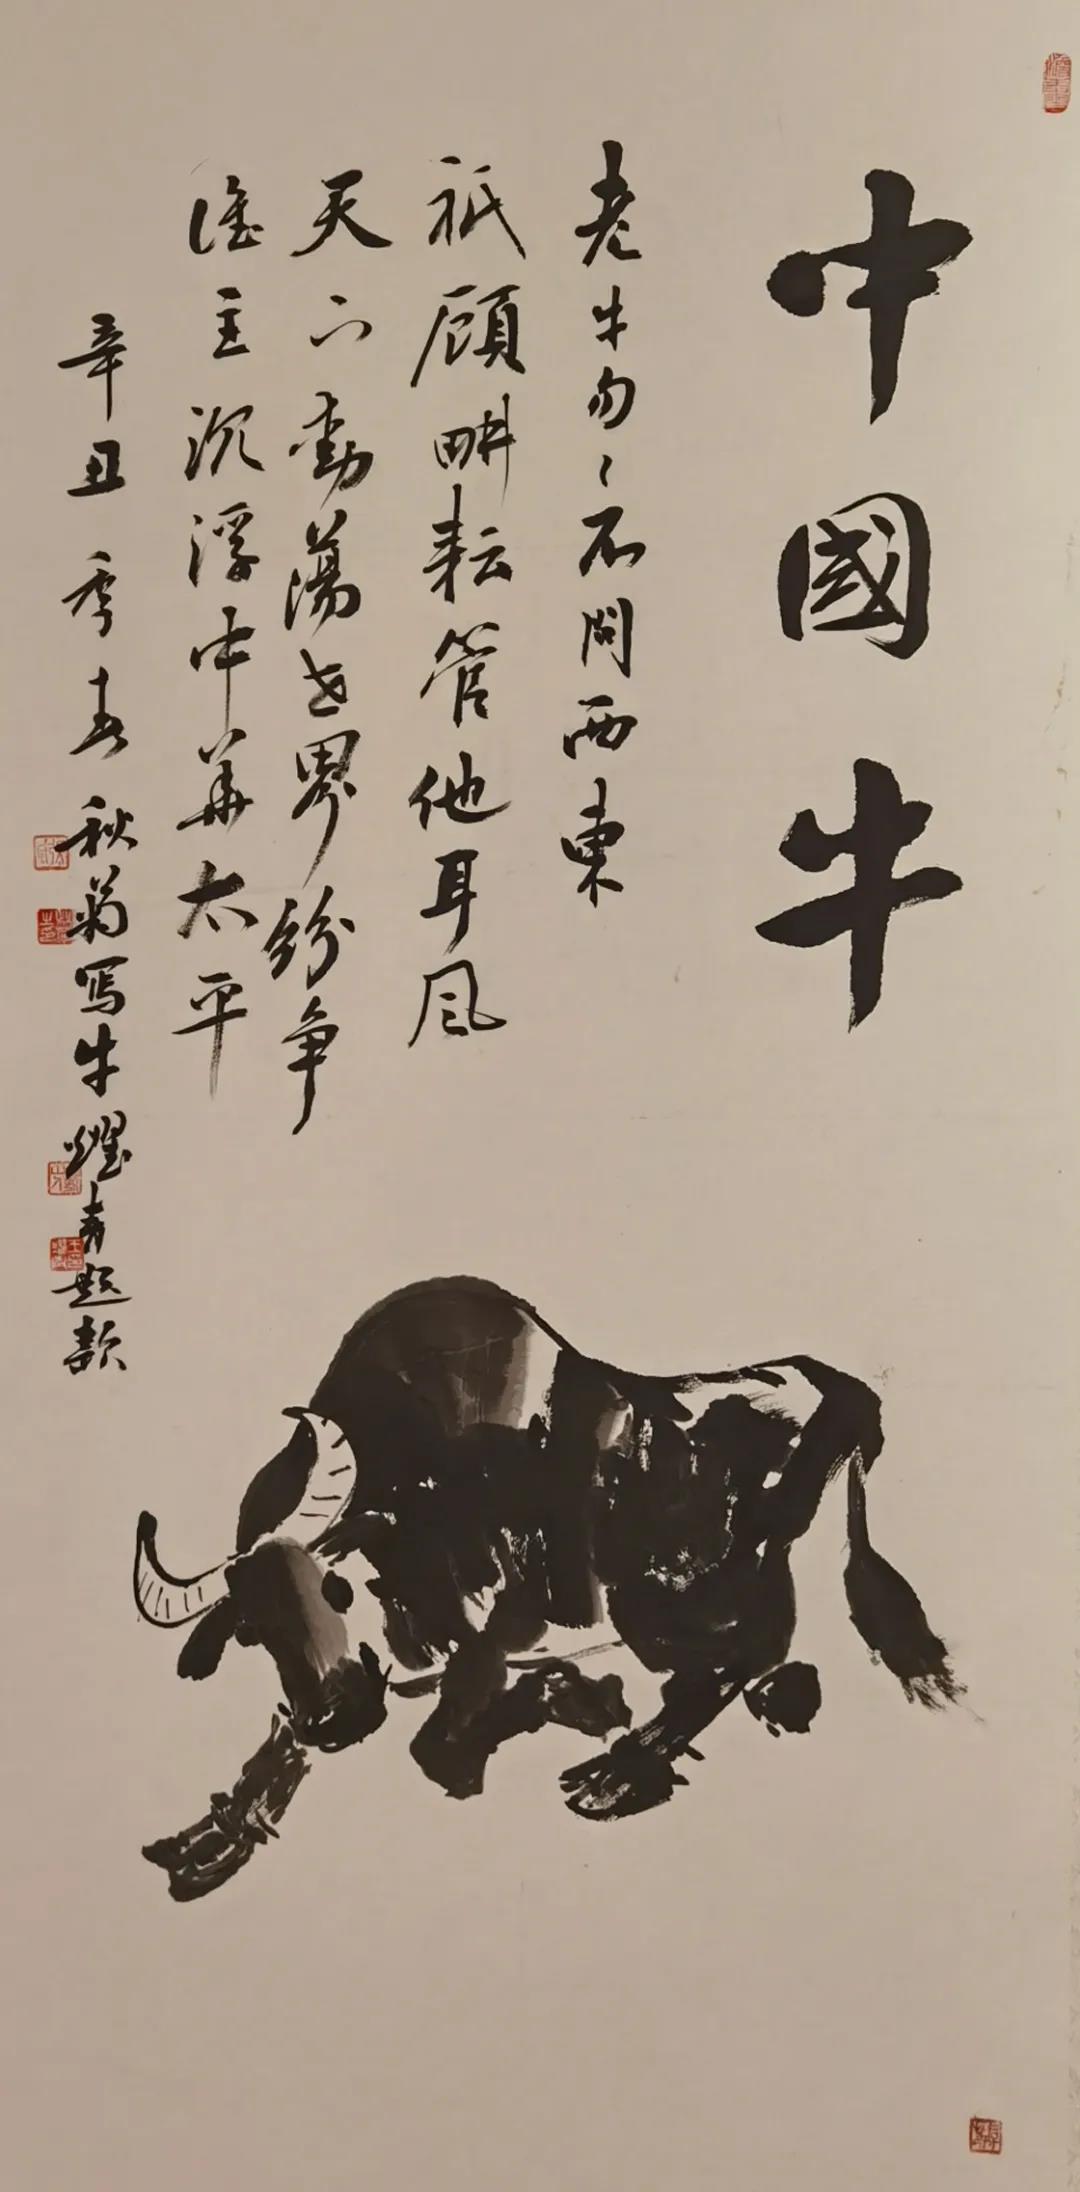 中國牛
老牛勿〻不問西東
祇顧畊耘管他耳風
天下動蕩世界紛争
誰主沉浮中華太平
辛丑季春秋菊写牛耀青題款